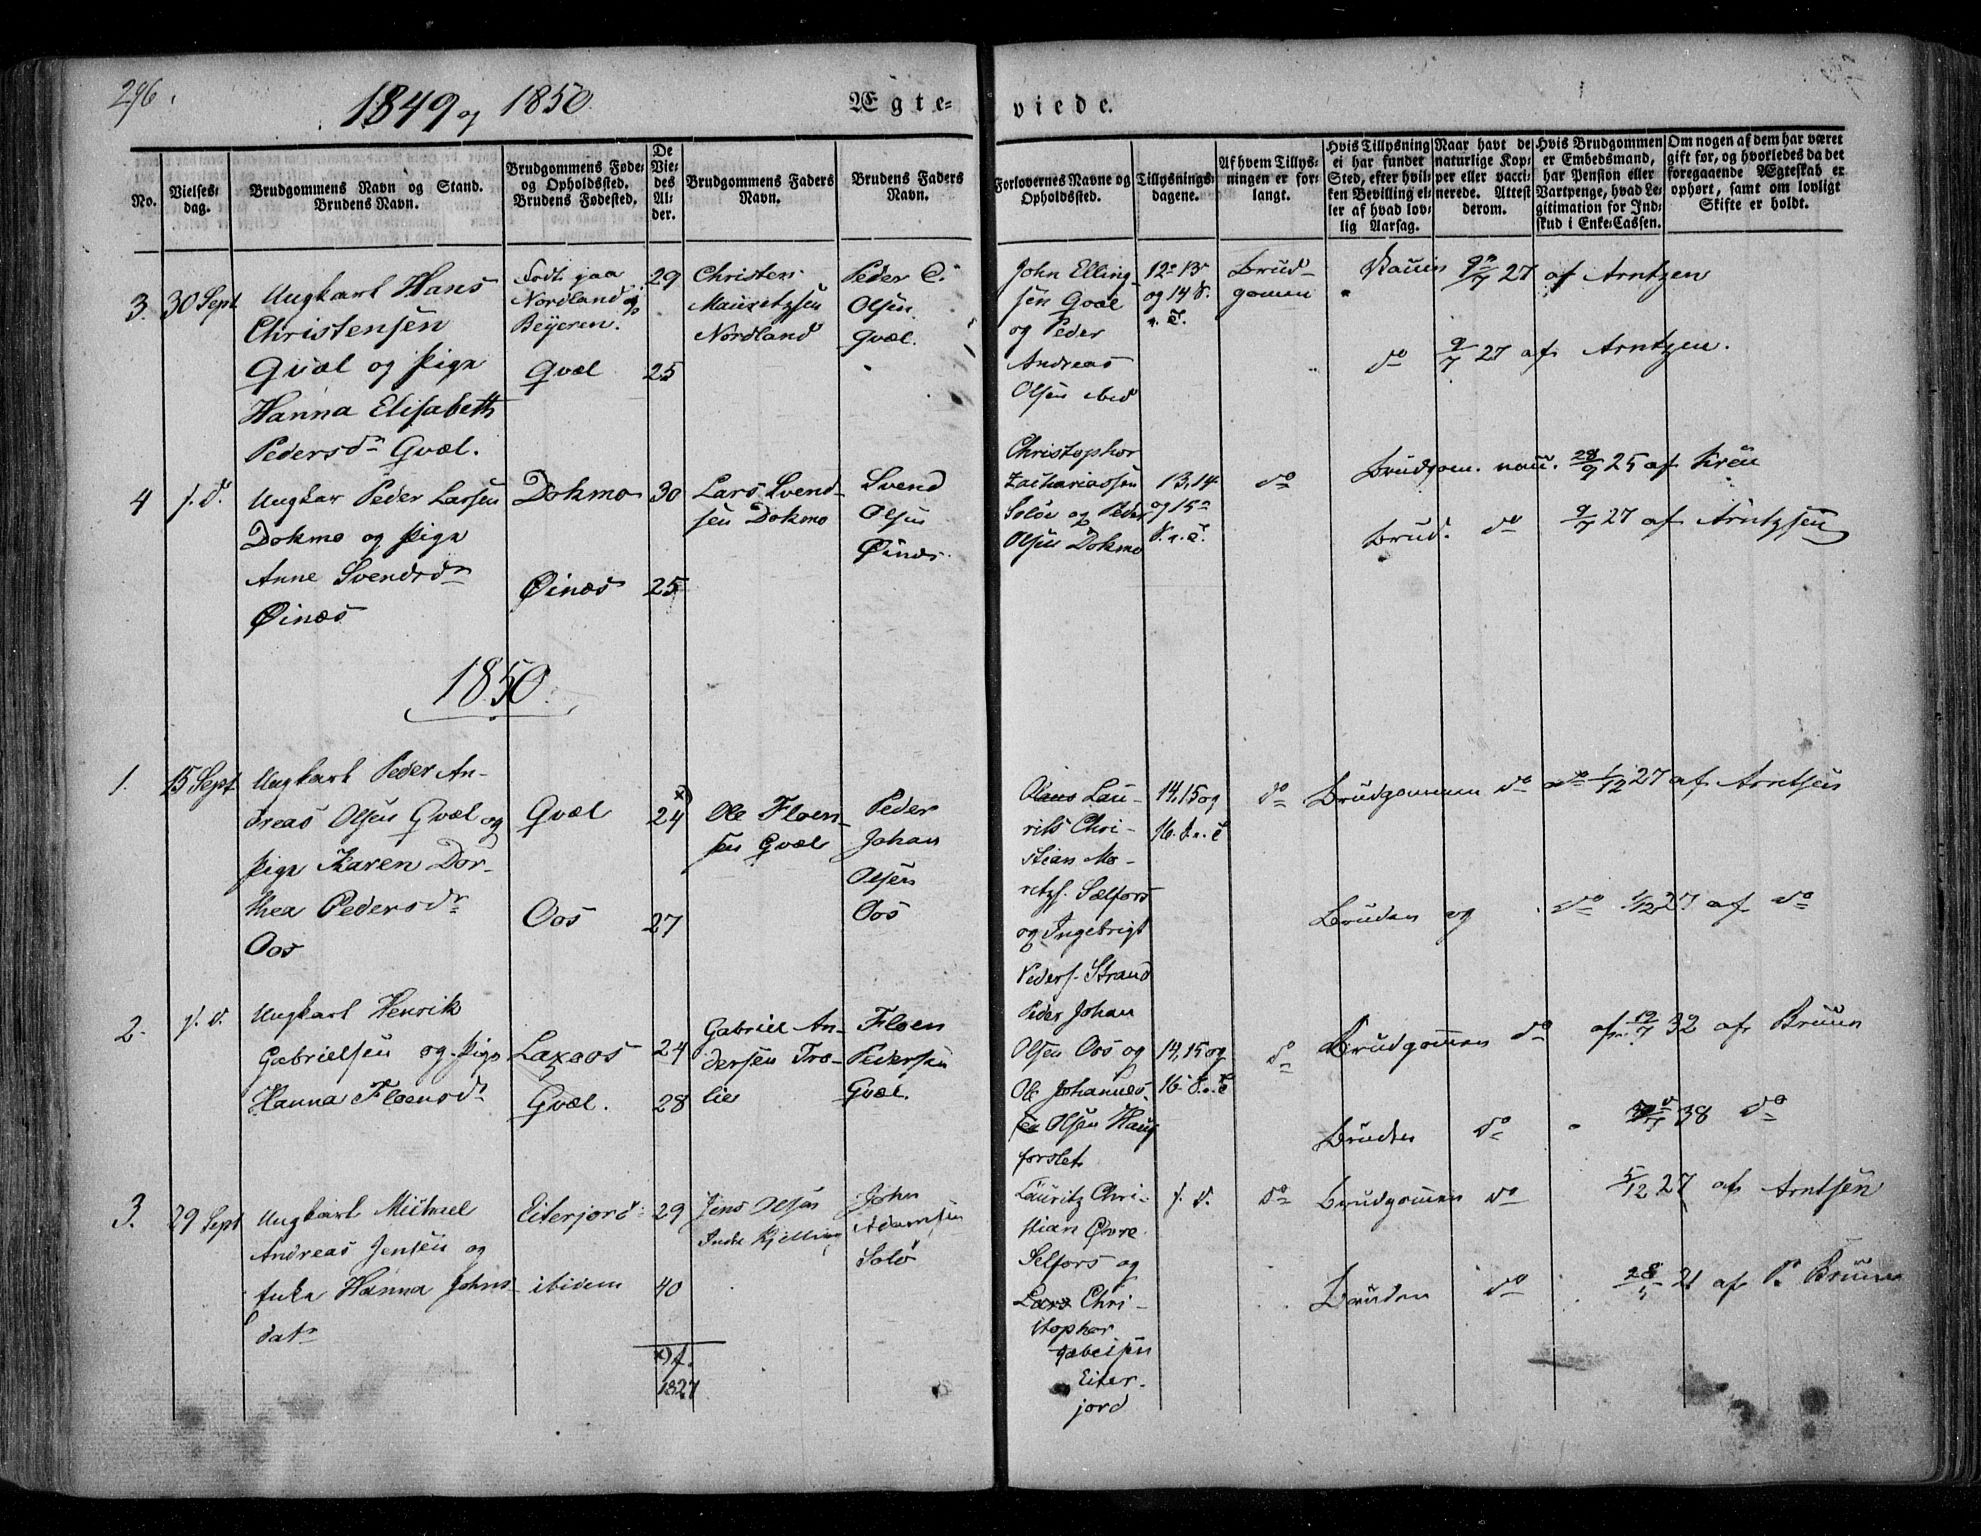 296.
1849 og 1850.
Ægte-
viede.
No.
Vielses-
dag.
Brudgommens Navn og Stand.
Brudens Navn.
Brudgommens Føde-
og Opholdssted.
Brudens Fødested.
De
Vie-
des
Al-
der.
Brudgommens Faders
Navn.
Brudens Faders
Navn.
Forlovernes Navne og
Opholdssted.
Tillysnings-
dagene.
Af hvem Tillys-
ningen er for-
langt.
Hvis Tillysning
ei har fundet
Sted, efter hvil-
ken Bevilling el-
ler af hvad lov-
lig Aarsag.
Naar havt de
naturlige Kop-
per eller vacci-
nerede. Attest
derom.
Hvis Brudgommen
er Embedsmand,
har Pension eller
Vartpenge, hvad Le-
gitimation for Ind-
skud i Enke-Cassen.
Om nogen af dem har været
gift før, og hvorledes da det
foregaaende Ægteskab er
ophørt, samt om lovligt
Skifte er holdt.
3.
30 Sept
Ungkarl Hans
Christensen
Qvæl og Pige
Hanna Elisabeth
Pedersdr Qvæl.
Født paa
Nordland og
Beijeren.
Qvæl
29
25
Christen
Mauritzsen
Nordland
Peder C.
Olsen
Qvæl.
John Elling
sen Qvæl
og Peder
Andreas
Olsen ibid
12te 13
og 14 S.
e. T.
Brud-
gomen
Vaccin 9/7 27 af Arntzen
do 9/7 27 af Arntzen.
4
s. d.
Ungkar Peder Larsen
Dokmo og Pige
Anne Svendsdr
Øinæs
Dokmo
Øinæs
30
25
Lars Svend-
sen Dokmo
Svend
Olsen
Øinæs.
Christopher
Zachariassen
Soløe og Peder
Olsen Dokmo
13, 14
og 15de
S. e. T.
do
Brudgom. vacc. 28/9 25 af Krøu
Brud. do 9/7 27 af Arntzsen
1850
1.
15 Sept
Ungkarl Peder An-
dreas Olsen Qvæl og
Pige Karen Dor-
thea Pedersdr
Oos
Qvæl
Oos
x)
24
27
Ole Floen-
sen Qvæl
Peder
Johan
Olsen
Oos
Olaus Lau-
rits Chri-
stian Mo-
ritzs. Sælfors
og Ingebrigt
Peders. Strand
14, 15 og
16. S. e. T
do
Brudgommen do do 5/12 27 af Arntsen
Bruden og do 5/12 27 af do
2.
s. d.
Ungkarl Henrik
Gabrielsen og Pige
Hanna Floensdr
Laxaos
Qvæl.
24
28
Gabriel An-
dersen Tro-
lie
Floen
Pedersen
Qvæl.
Peder Johan
Olsen Oos og
Ole Johannes-
sen Olsen Haug
forslet
14, 15 og
16. S. e. T
do
Brudgommen do af 12/7 32 af Bruun
Bruden do 38 do
3.
29 Sept
Ungkarl Michael
Andreas Jensen og
Enke Hanna Johns-
datr
Eiterjord
ibidem
29
40
Jens Olsen
Indre Kjelling
John
Adamsen
Solø
Lauritz Chri-
stian Ovre
Selfors og
Lars Chri-
stopher
Gabelsen
Eiter-
jord
s. d.
do
Brudgommen do 5/12 27 af Arntsen
Bruden do 28/5 21 af P. Bruun
x) f.
1827